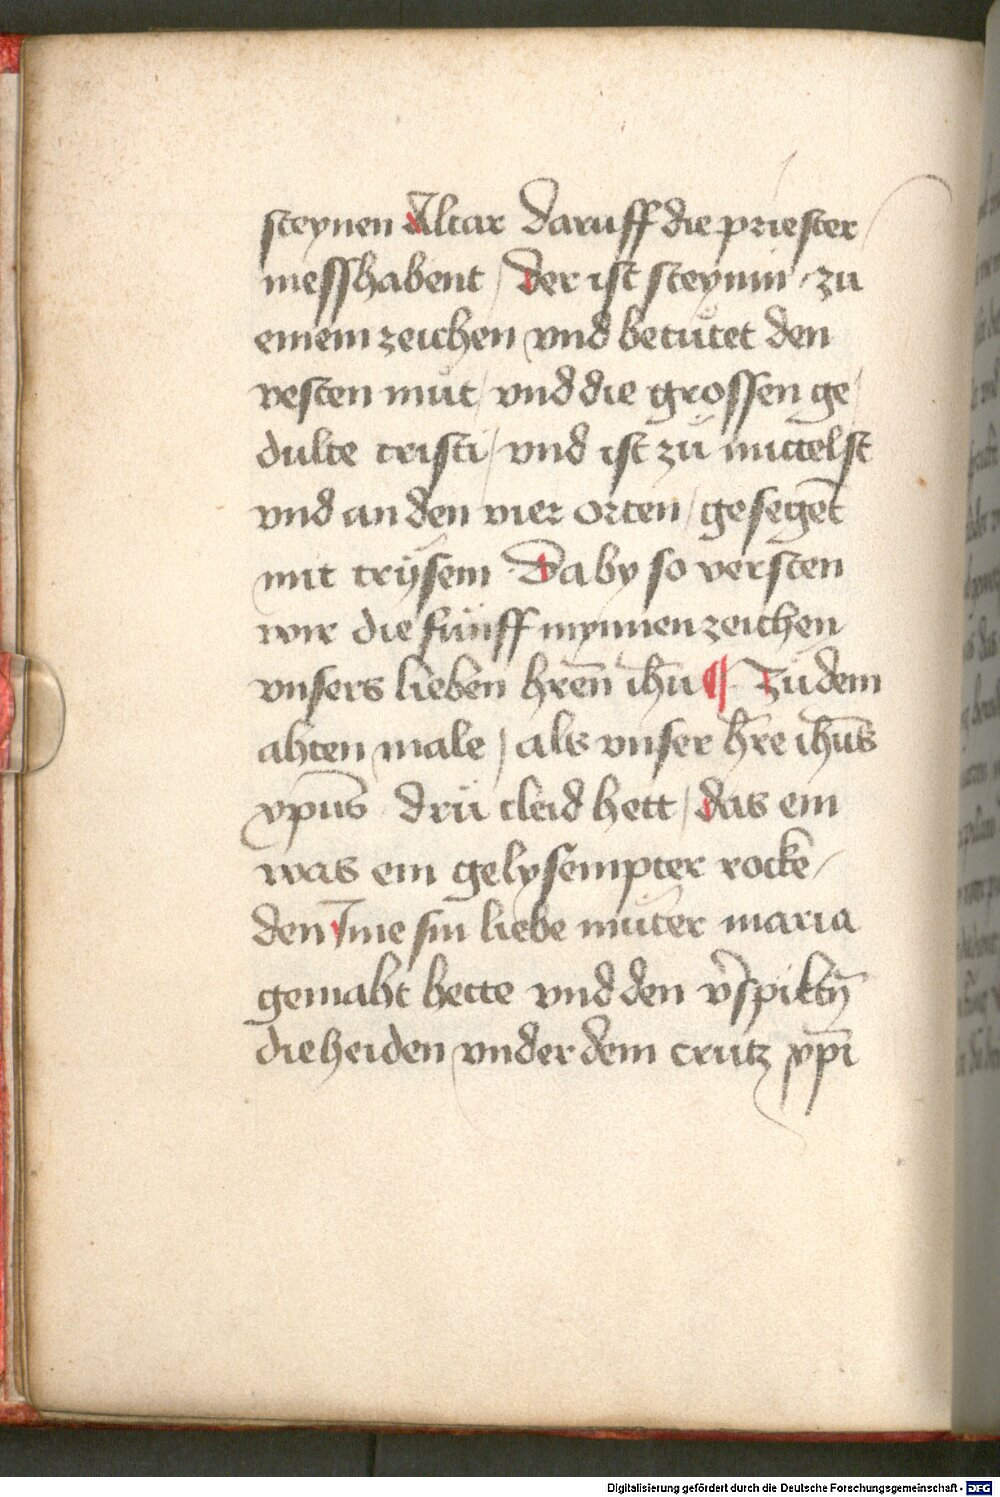 steynen Altar daruff die priester
messhabent / der ist steynin · zu
einem zeichen vnd betutet den
vesten mut / vnd die grossen ge
dulte cristi / vnd ist zů mittelst
vnd an den vier orten / gesegēt
mit crysem · Da by so versten
wir die fünff mynnenzeichen
vnsers lieben hren̄ ihū ¶ Zů dem
ahten male / als vnser hr̄e ihūs
xpūs drü cleid hett / das ein
was ein gelysempter rocke /
den Ime sin liebe můter maria
gemaht hette vnd den v̄spiltn̄
die heiden vnder dem crütz xpī
Digitalisierung gefördert durch die Deutsche Forschungsgemeinschaft - DFG